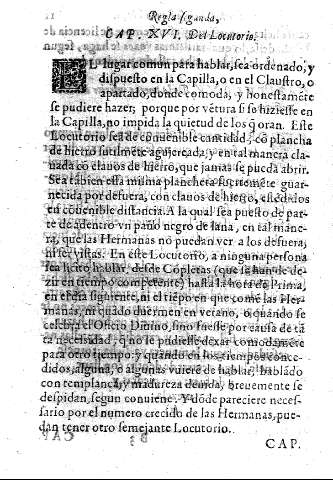 Regla segunda,
CAP. XVI. Del Locutorio.
EL lugar comun para hablar, sea ordenado, y
dispuesto en la Capilla, o en el Claustro, o
apartado, donde comoda, y honestamẽte
se pudiere hazer; porque por vẽtura si se hiziesse en
la Capilla, no impida la quietud de los q̃ oran. Este
Locutorio sea de conuenible cantidad, cõ plancha
de hierro sutilmẽte agujereada, y en tal manera cla
uada cõ clauos de hierro, que jamas se pueda abrir.
Sea tãbien esta misma planchera fuertemẽte guar-
necida por defuera, con clauos de hierro, estẽdidos
en cõuenible distancia. A la qual sea puesto de par-
te de adentro vn paño negro de lana, en tal mane-
ra, que las Hermanas no puedan ver a los defuera,
ni ser vistas. En este Locutorio, a ninguna persona
sea licito hablar, desde Cõpletas (que se han de de-
zir en tiempo competente) hasta la hora de Prima,
en el dia siguiente, ni el tiẽpo en que comẽ las Her-
manas, ni quãdo duermen en verano, o quãdo se
celebra el Oficio Diuino, sino fuesse por causa de tã
ta necessidad, q̃ no le pudiesse dexar comodamẽte
para otro tiempo: y quando en los tiempos conce-
didos, alguna, o algunas vuierẽ de hablar, hablãdo
con templança, y madureza deuida, breuemente se
despidan, segun conuiene. Y dõde pareciere neces-
sario por el numero crecido de las Hermanas, pue-
dan tener otro semejante Locutorio.
CAP.